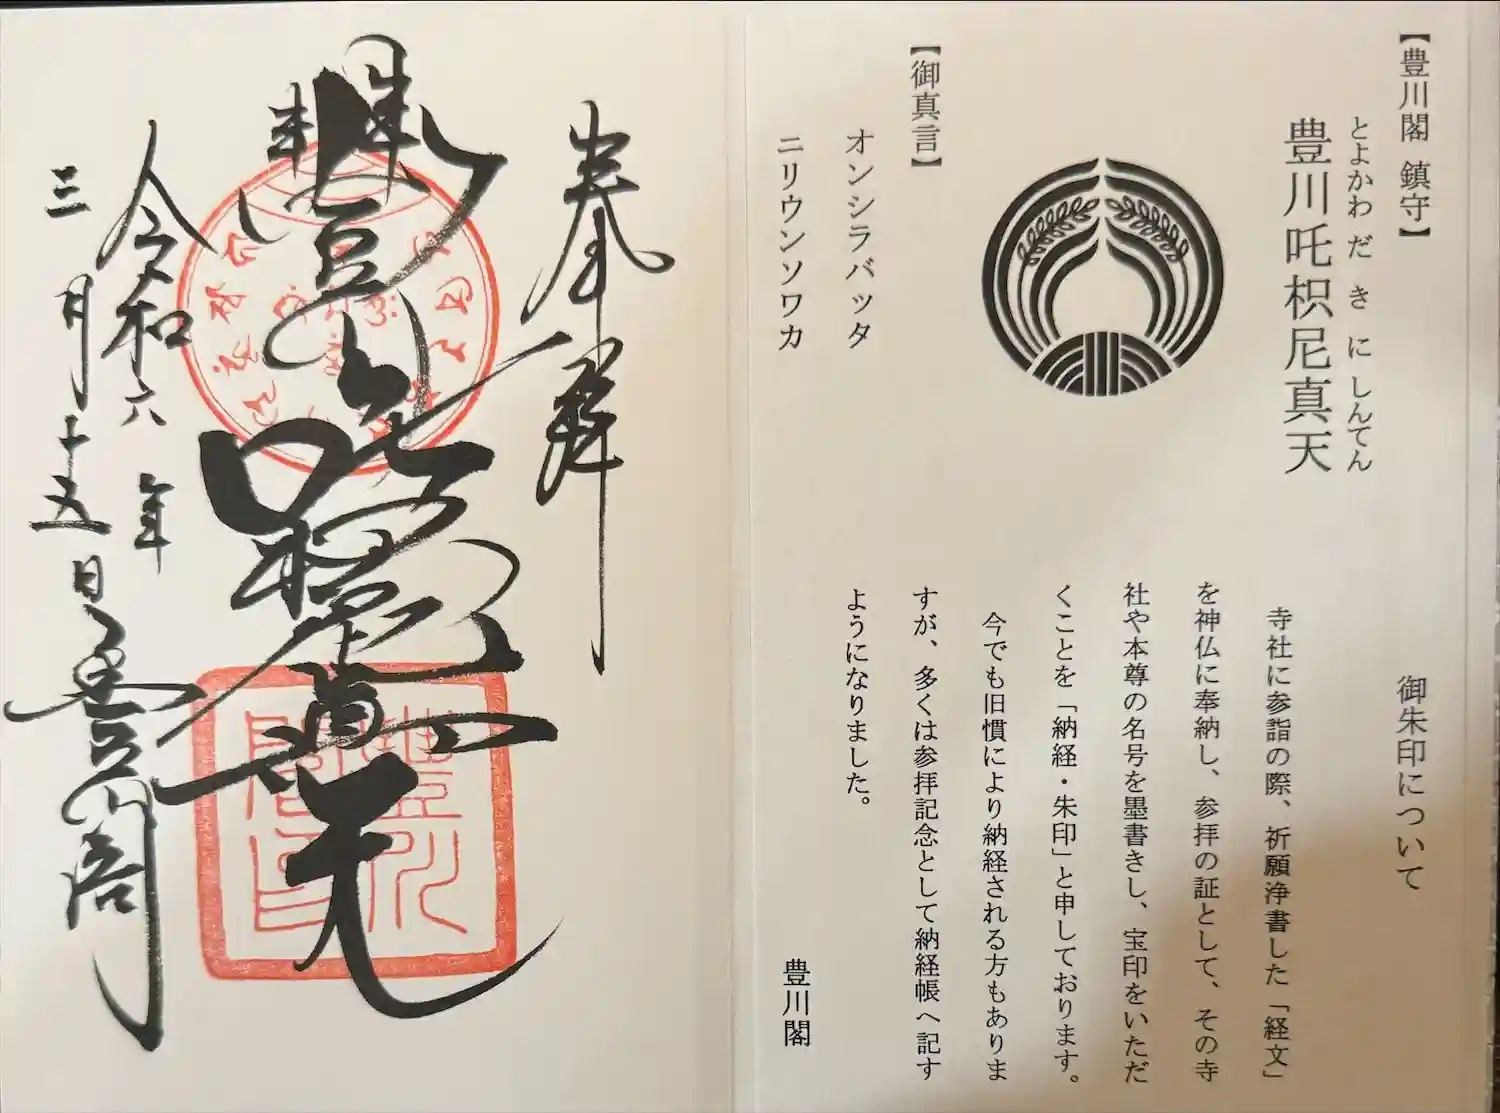 【豊川閣 鎮守】
とよかわ だ き に しんてん
豊川吒枳尼真天
【御真言】
オンシラバッタ
ニリウンソワカ
御朱印について
寺社に参詣の際、祈願浄書した「経文」
を神仏に奉納し、参拝の証として、その寺
社や本尊の名号を墨書きし、宝印をいただ
くことを「納経・朱印」と申しております。
今でも旧慣により納経される方もありま
すが、多くは参拝記念として納経帳へ記す
ようになりました。
豊川閣
奉拝
豊川吒枳尼真天
豊川閣
令和六年
三月十五日 豊川閣